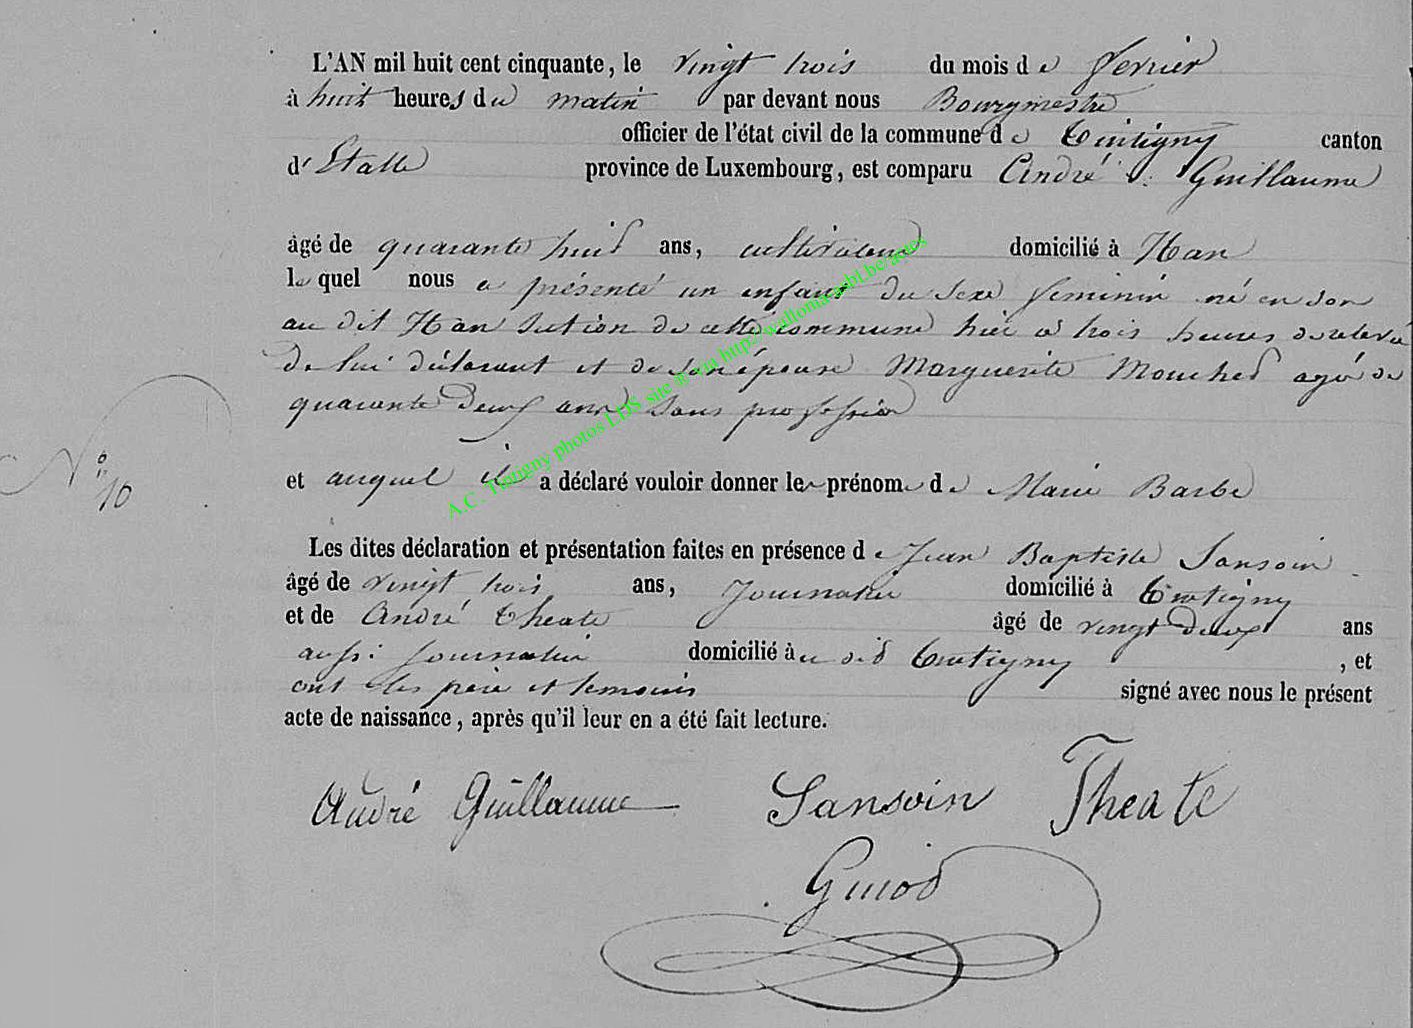 L'AN mil huit cent cinquante, le vingt trois du mois de fevrier
à huit heures du matin par devant nous Bourgmestre
officier de l'état civil de la commune de Tintigny canton
d'Etalle province de Luxembourg, est comparu André Guillaume
âgé de quarante huit ans, cultivateur domicilié à Han
lequel nous a présenté un enfant du sexe feminin né en son
au dit Han Section de cette commune hier à trois heures de relevée
de lui déclarant et de son épouse Marguerite Mouched agée de
quarante Deux ans Sans profession
N° 10
et auquel il a déclaré vouloir donner les prénoms de Marie Barbe
Les dites déclaration et présentation faites en présence de Jean Baptiste Sansoin
âgé de vingt trois ans, Journalier domicilié à Tintigny
et de André Theate âgé de vingt deux ans
aussi Journalier domicilié au dit Tintigny , et
ont les père et temoins signé avec nous le présent
acte de naissance, après qu'il leur en a été fait lecture.
André Guillaume Sansoin Theate
Guiod
A.C. Tintigny photos LDS site @ via http://wallonia-asbl.be/actes